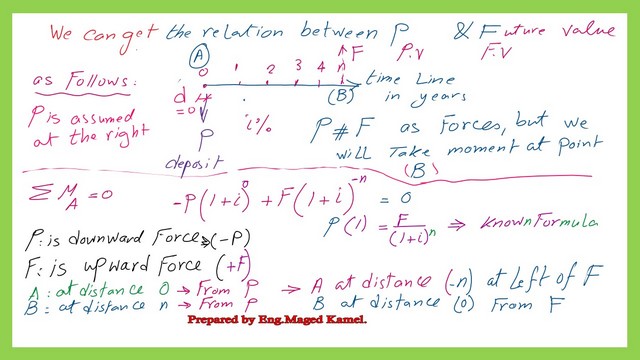 We can get the relation between P & Future value
P.V F.V
A
F
0 1 2 3 4 n
as Follows:
time Line
in years
d = 0
(B)
P is assumed
at the right
i%
P
deposit
P # F as Forces, but we
will Take moment at point
(B)
ΣM_A = 0
-P(1+i)^0 + F(1+i)^-n = 0
P(1) = F/(1+i)^n ⇒ Known Formula
P: is downward Force ⇒ (-P)
F: is upward Force (+F)
A: at distance 0 → From P → A at distance (-n) at left of F
B = at distance n → From P B at distance (0) From F
Prepared by Eng.Maged Kamel.